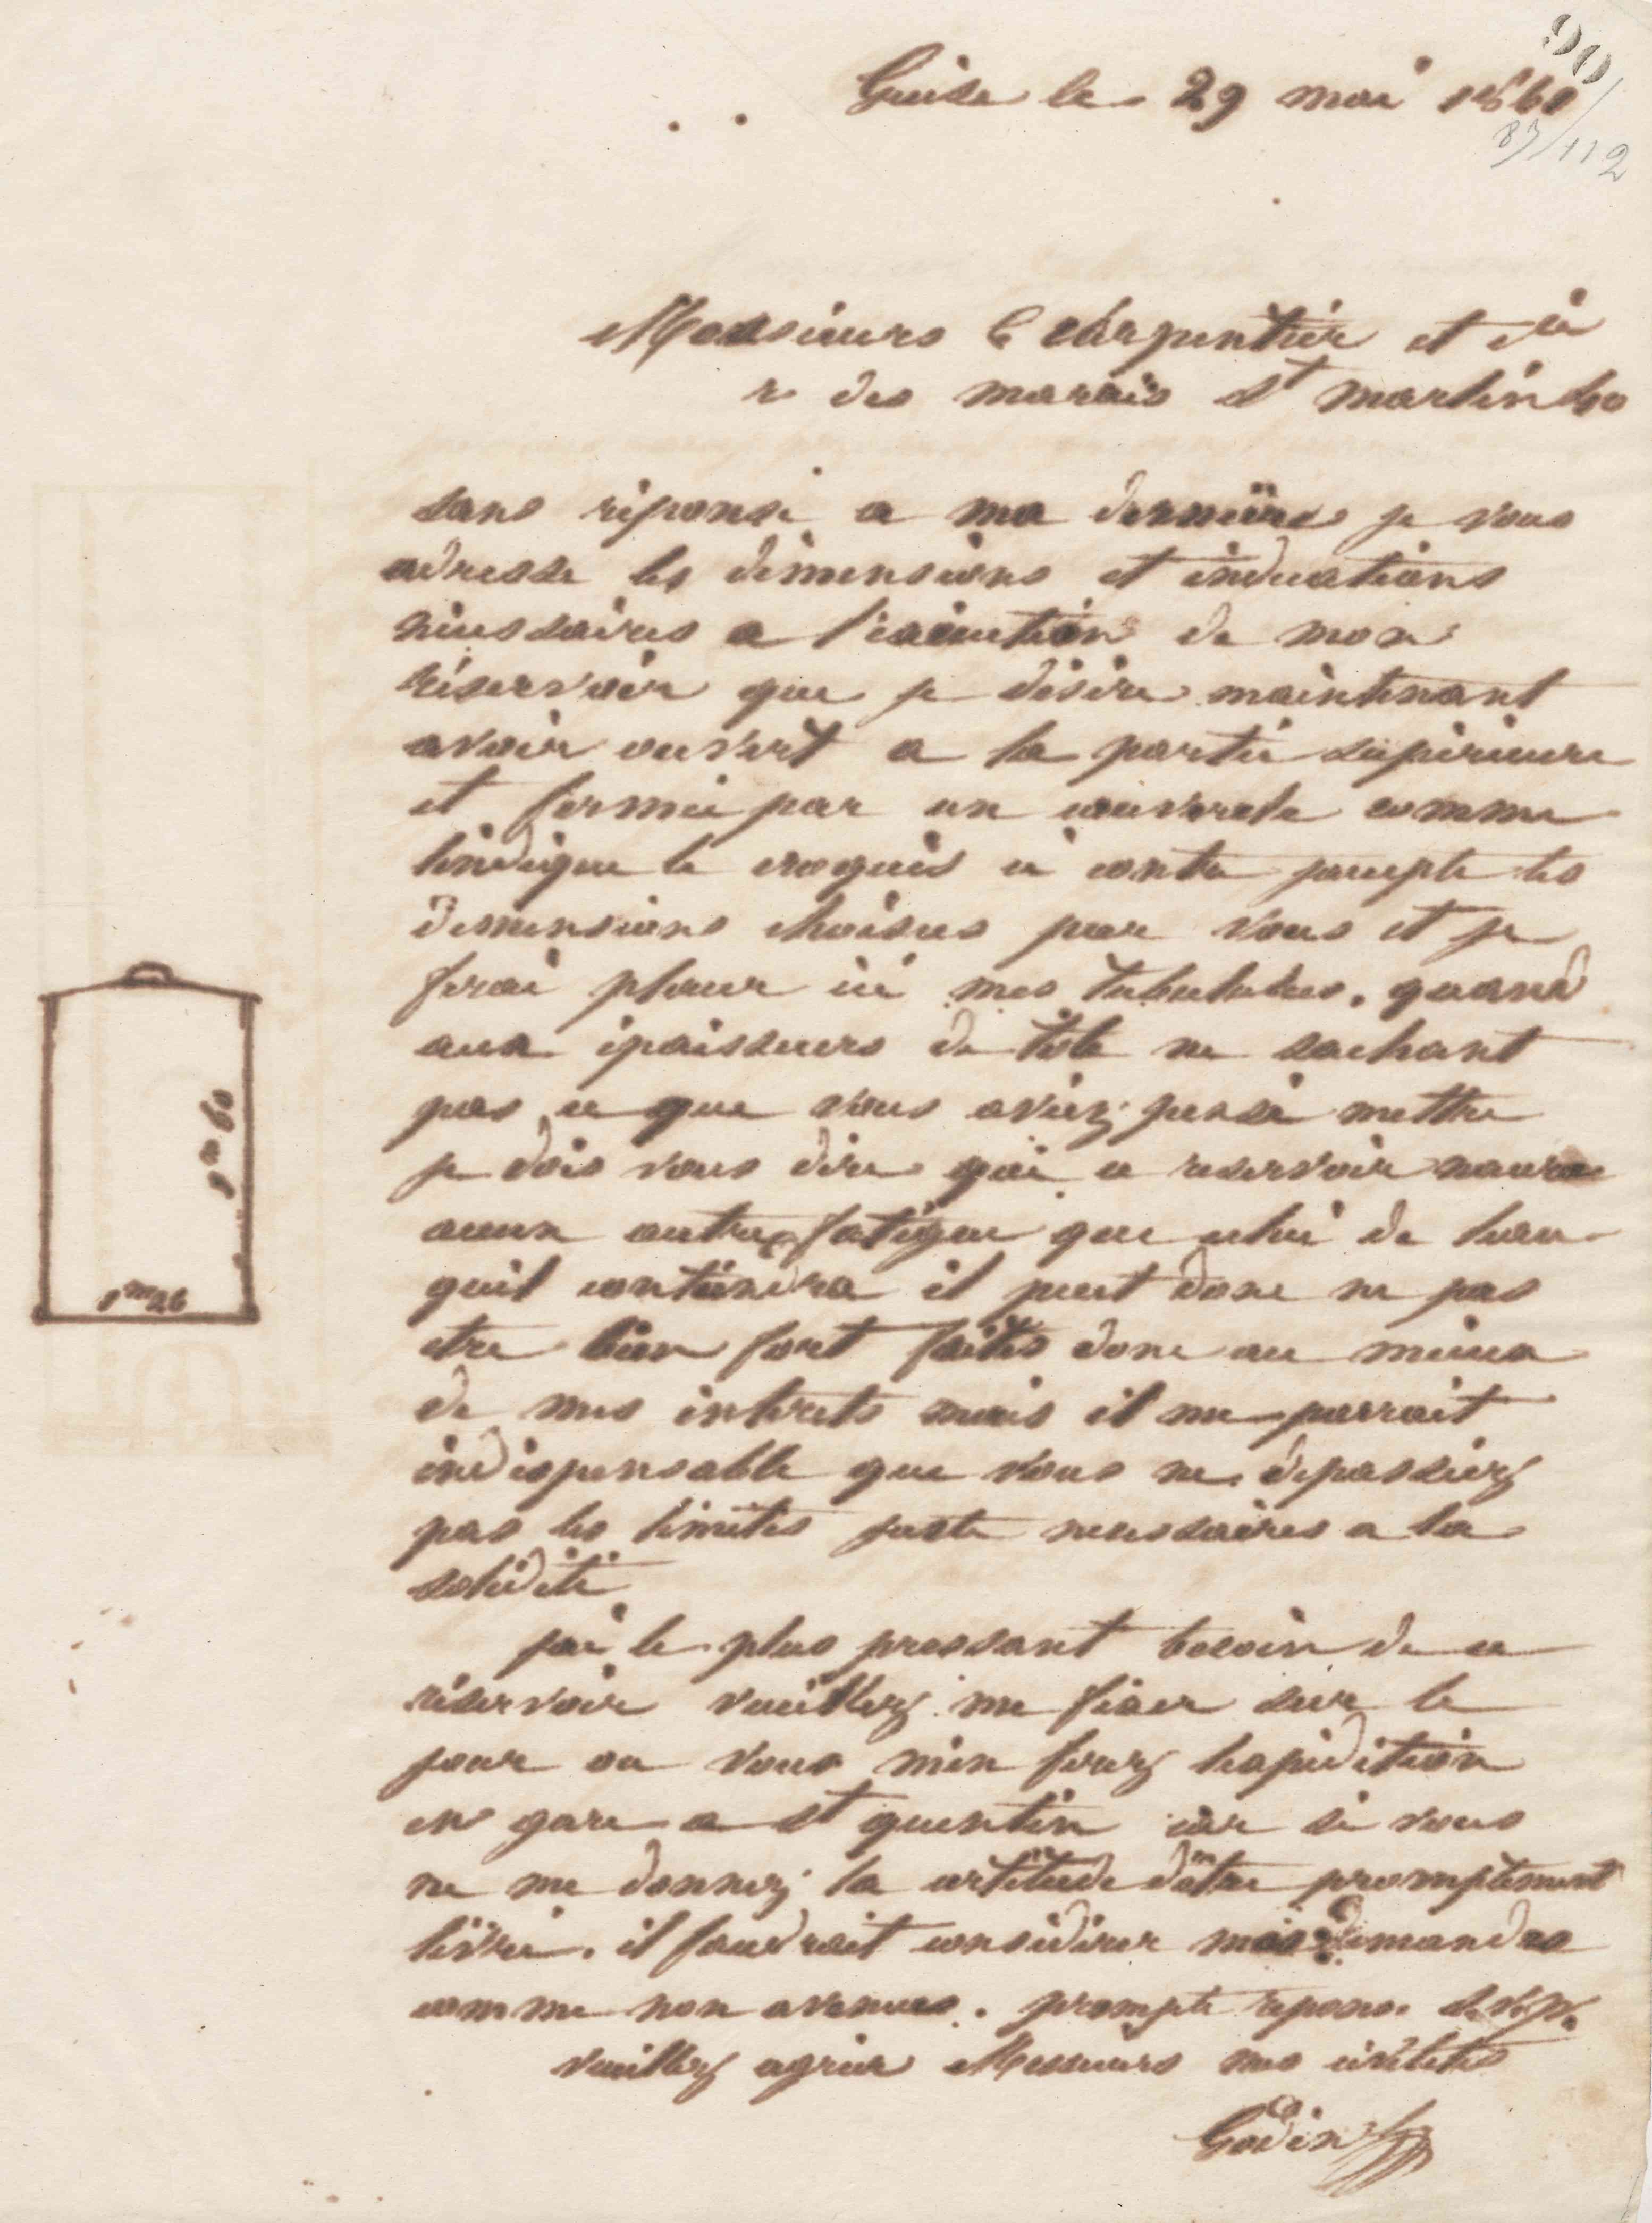 90
Guise le 29 mai 1860
83/112
Messieurs C Charpentier et Cie
r des marais St martin 40
sans réponse a ma dernière je vous
adresse les dimensions et indications
nécessaires a l'exécution de mon
réservoir que je désire maintenant
avoir ouvert a la partie supérieure
et fermée par un couvercle comme
lindique le croquis ci contre jaccepte les
dimensions choisies par vous et je
ferai placer ici mes tubulures. quand
aux épaisseurs de tôle ne sachant
pas ce que vous aviez pensé mettre
je dois vous dire que ce reservoir naura
aucun autre fatigue que celui de leau
quil contiendra il peut donc ne pas
etre bien fort faites donc au mieux
de mes intérets mais il me parrait
indispensable que vous ne dépassiez
pas les limites juste necessaires a la
solidité
jai le plus pressant besoin de ce
réservoir veuillez me fixer sur le
jour ou vous m'en ferez lexpédition
en gare a St quentin car si vous
ne me donnez la certitude dêtre promptement
livré. il faudrait considérer mes demandes
comme non avenues. prompte réponse s.v.p.
veuillez agréer Messieurs mes civilités
Godin
1m 60
1m 26